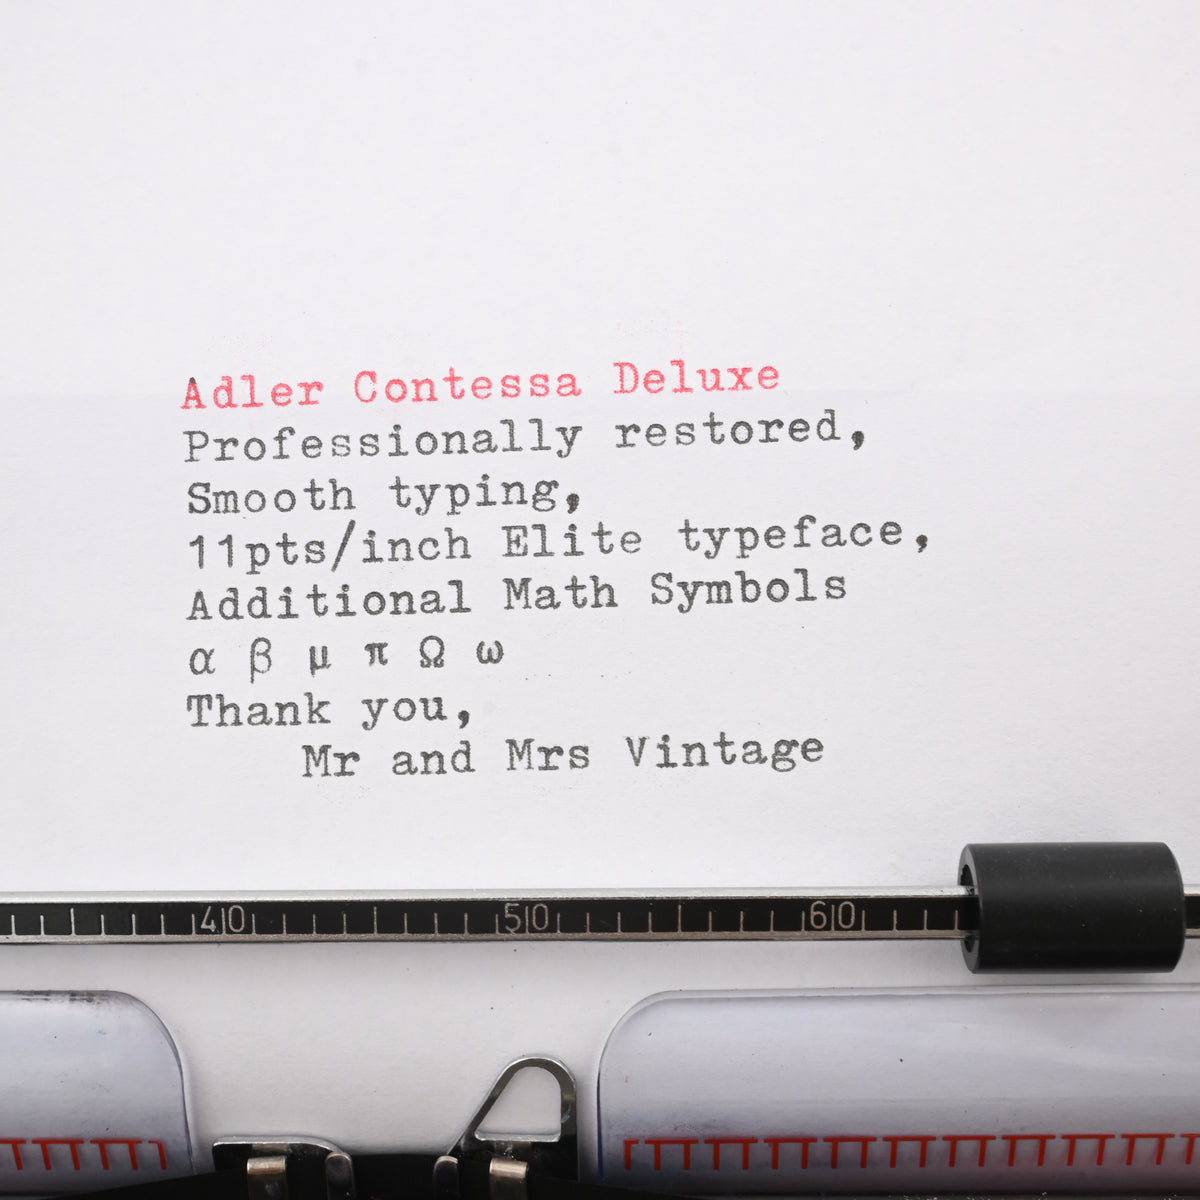 Adler Contessa Deluxe
Professionally restored,
Smooth typing,
11pts/inch Elite typeface,
Additional Math Symbols
α β μ π Ω ω
Thank you,
Mr and Mrs Vintage
40 50 60